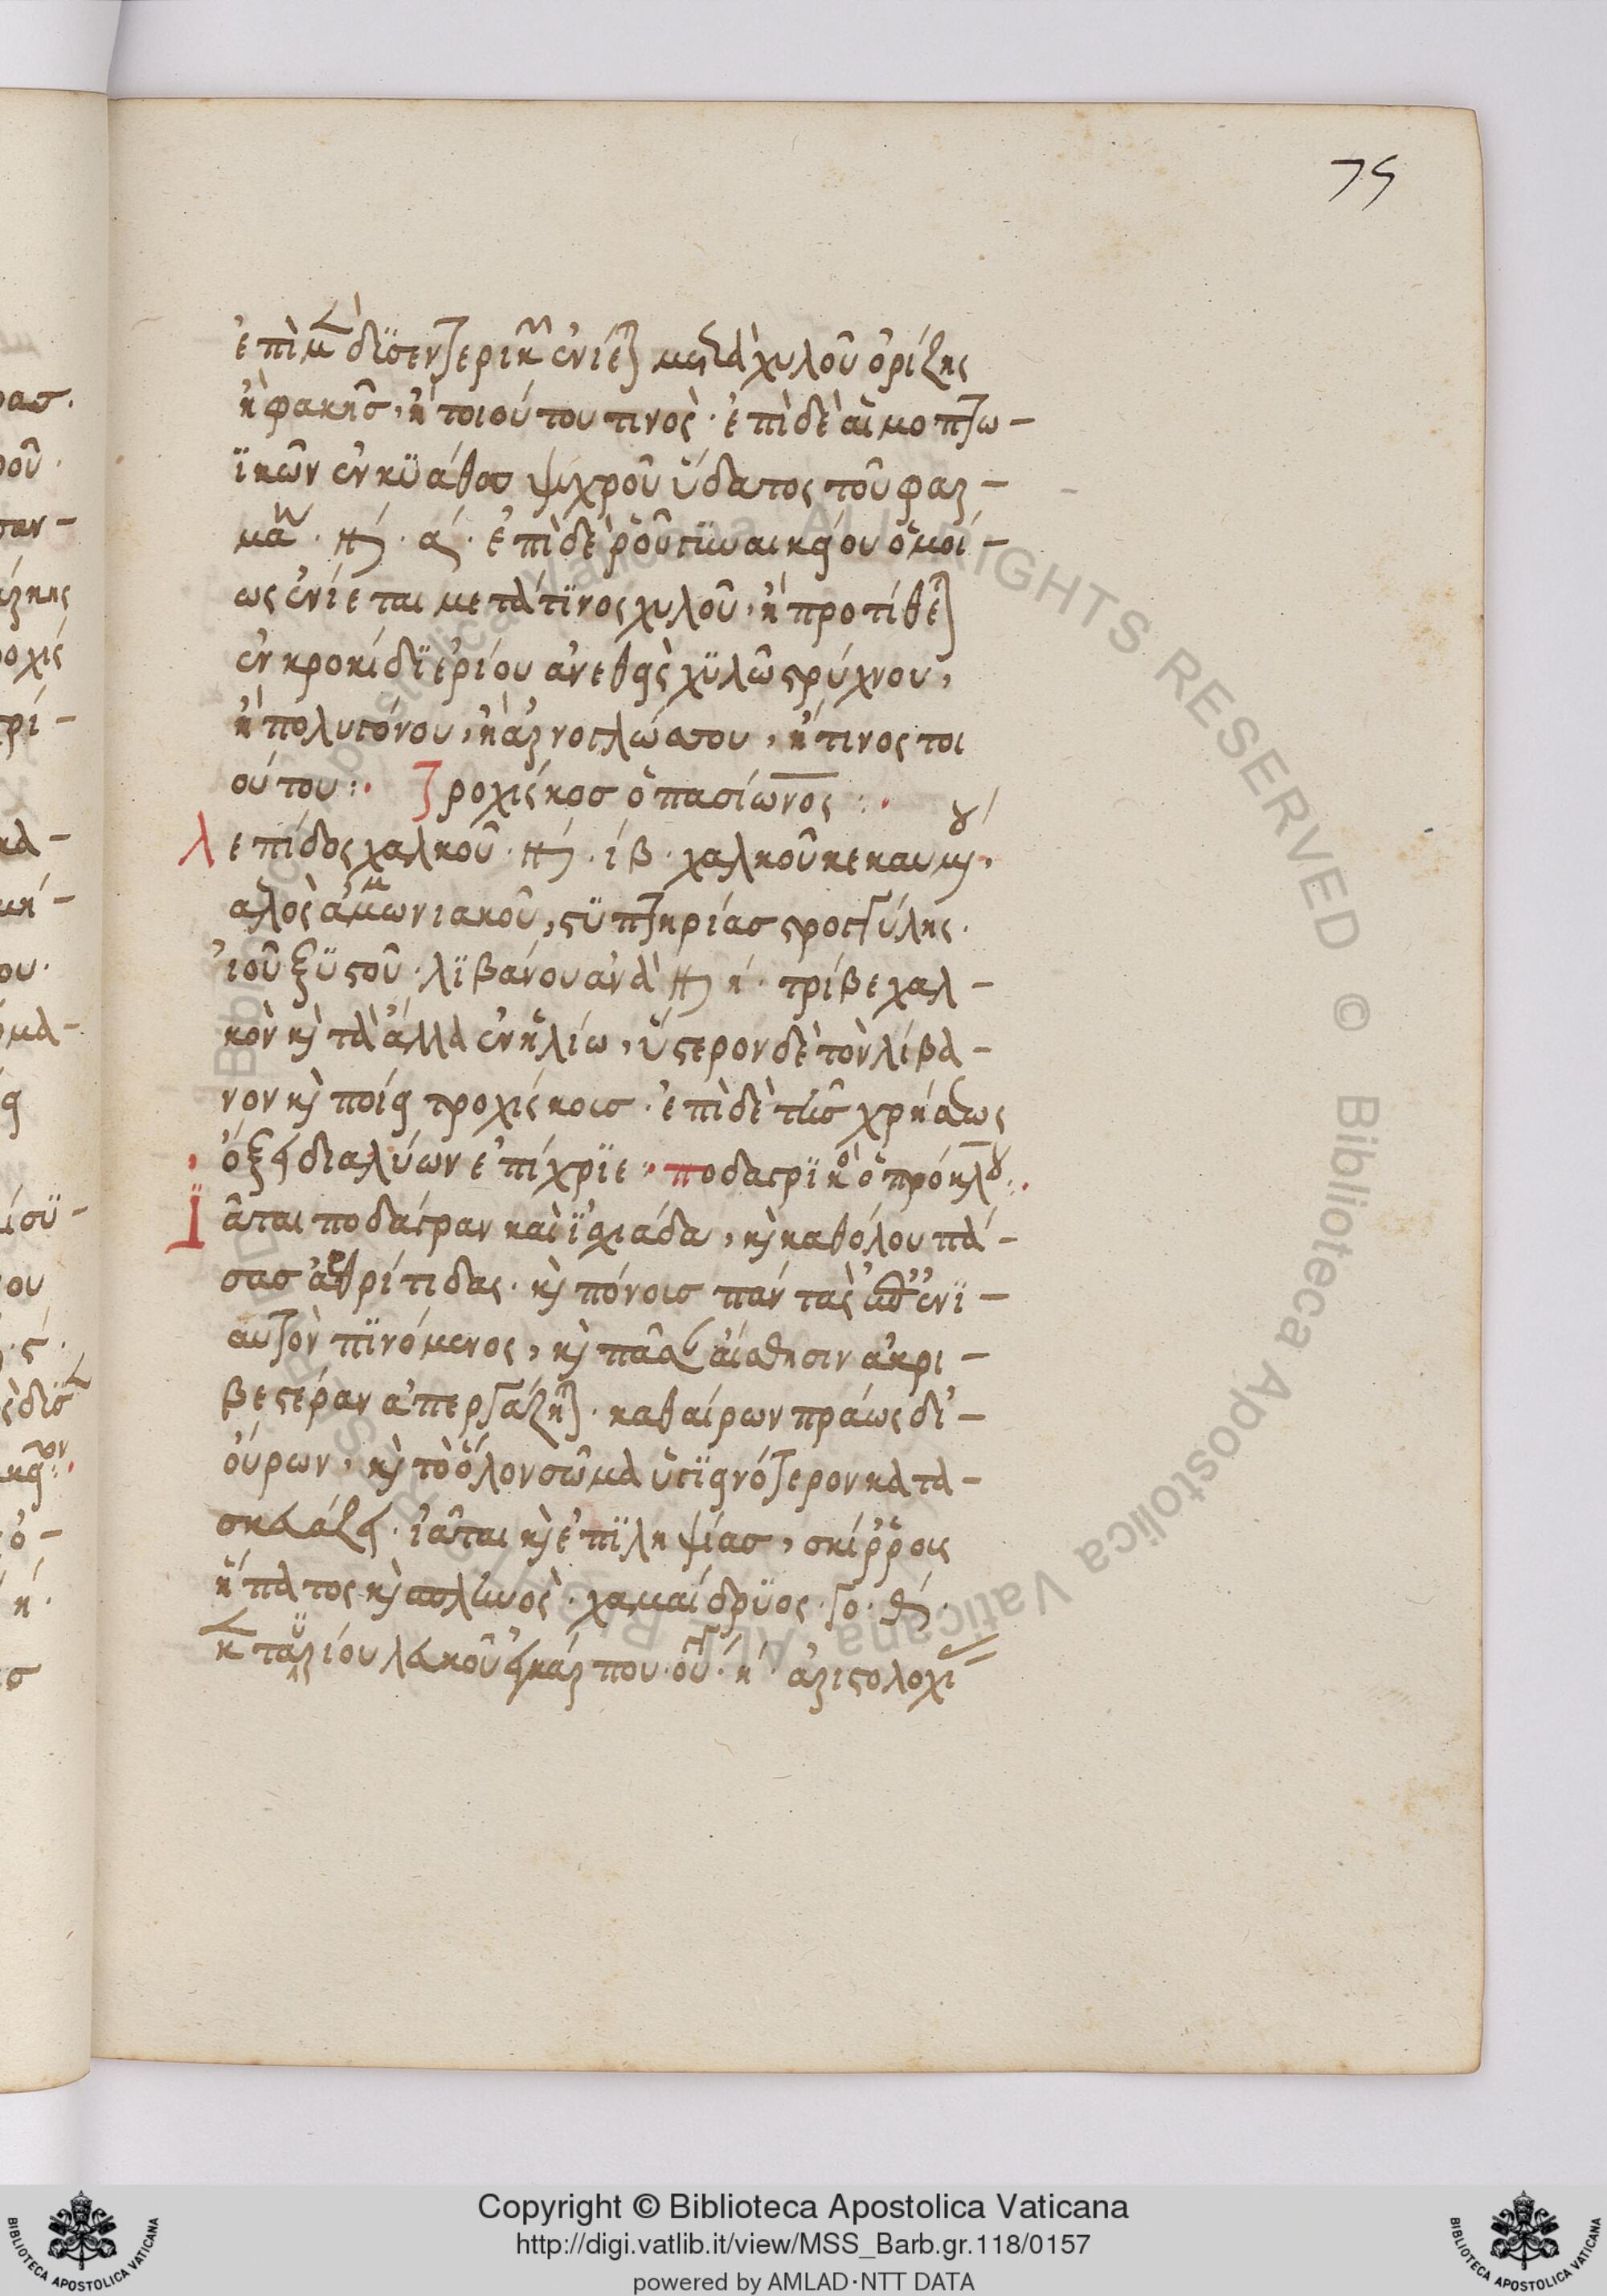 75
ἐπὶ μὲν δϊσεντερικῶν ἐνίεται μετὰ χυλοῦ ὀρίζης
ἢ φακῆς, ἢ τοιούτου τινὸς· ἐπὶ δὲ αἱμοπτω-
ϊκῶν ἐν κϋάθοις ψυχροῦ ὕδατος τοῦ φαρ-
μάκου · α΄· ἐπὶ δὲ ῥοῦ γϋναικείου ὁμοί-
ως ἐνίεται μετά τϊνος χυλοῦ, ἢ προτίθεται
ἐν κροκίδϊ ἐρίου ἀνεθεὶς χϋλῶ στρύχνου,
ἢ πολυγόνου, ἢ ἀρνογλώσσου, ἤ τινος τοι
ούτου: τροχίσκος ὁ πασίωνος:
λεπίδος χαλκοῦ · ιβ· χαλκοῦ κεκαυμένου,
αλὸς ἀμμωνιακοῦ, στϋπτηρίας στρογγύλης·
ἰοῦ ξϋστοῦ· λϊβάνου ἀνὰ η΄· τρίβε χαλ-
κὸν καὶ τὰ ἄλλα ἐν ἡλίω, ὕστερον δὲ τὸν λίβα-
νον καὶ ποίει τροχίσκους· ἐπὶ δὲ τῆς χρήσεως
ὄξει διαλύων ἐπίχρϊε· ποδαγρϊκὸς ὁ πρόκλου:
Ϊᾶται ποδάγραν καὶ ϊσχιάδα, καὶ καθόλου πά-
σας ἀρθρίτιδας· καὶ πόνους πάντας ἐνϊ-
αυτὸν πϊνόμενος, καὶ πᾶσαν αἴσθησιν ἀκρι-
βεστέραν ἀπεργάζεται· καθαίρων πράως δι᾽-
οὔρων, καὶ τὸ ὅλον σῶμα ὑγϊεινότερον κατα-
σκευάζει· ἰᾶται καὶ ἐπϊληψίας, σκίρρους
ἥπατος καὶ σπλϊνὸς· χαμαίδρϋος · θ΄·
κενταυρίου λευκοῦ καρποῦ · η΄· ἀριστολοχί
Copyright © Biblioteca Apostolica Vaticana
http://digi.vatlib.it/view/MSS_Barb.gr.118/0157
powered by AMLAD·NTT DATA